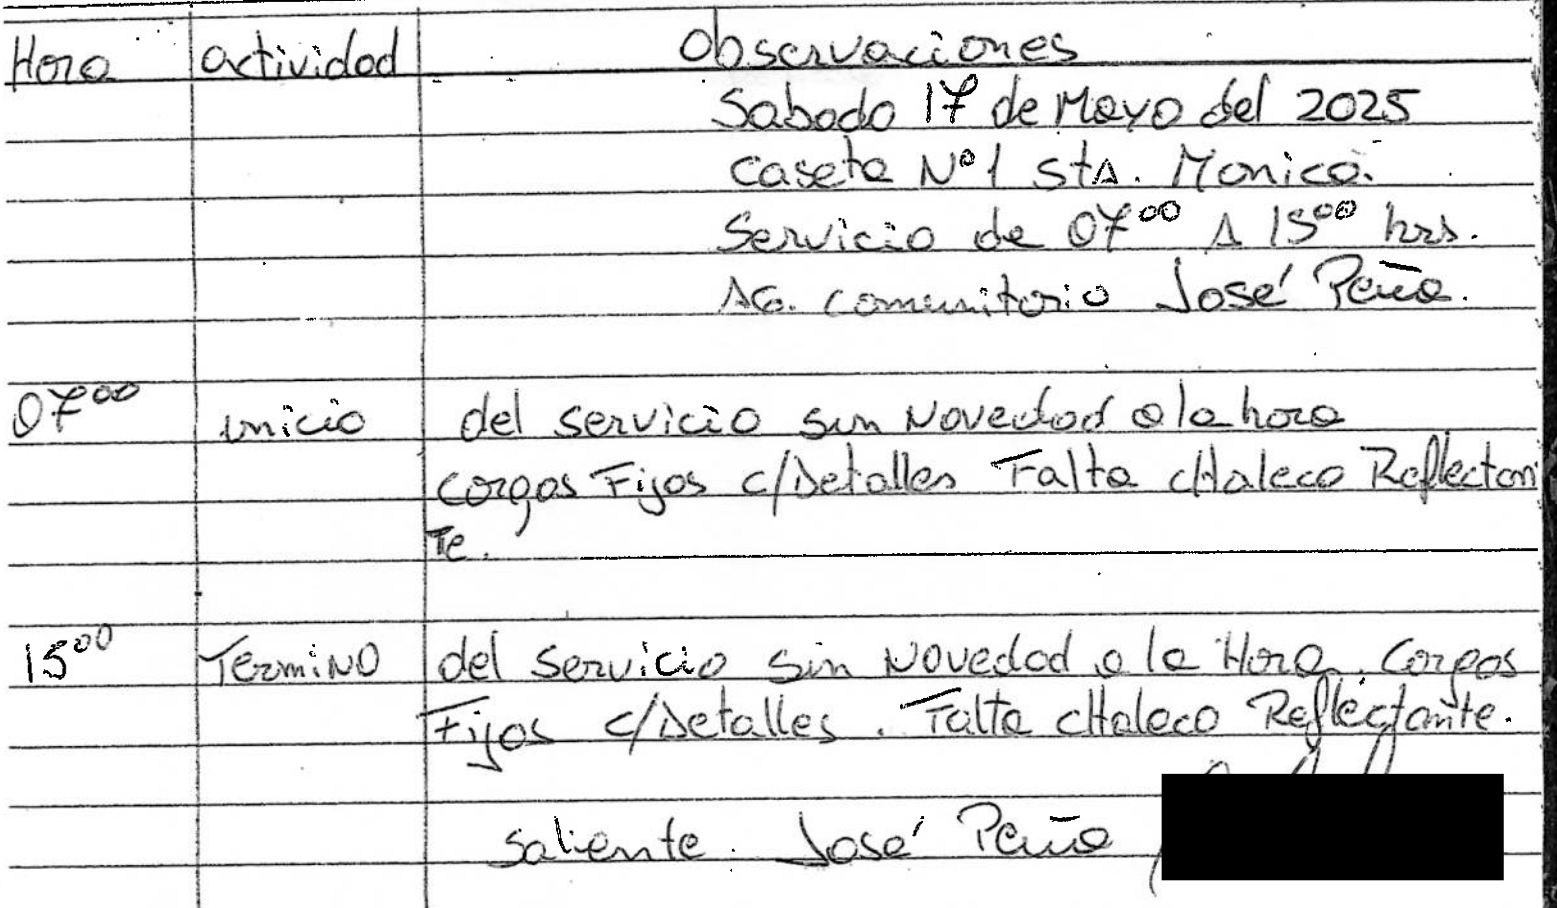 Hora actividad Observaciones
Sabado 17 de Mayo del 2025
caseta Nº1 stA. Monica.
Servicio de 07⁰⁰ A 15⁰⁰ hrs.
AG. comunitario José Peña.
07⁰⁰ inicio del servicio sin Novedad a la hora
cargos Fijos c/Detalles Falta cHaleco Reflectan
Te.
15⁰⁰ TermiNO del servicio sin Novedad a la Hora. Cargos
Fijos c/Detalles. Falta cHaleco Reflectante.
Saliente. José Peña